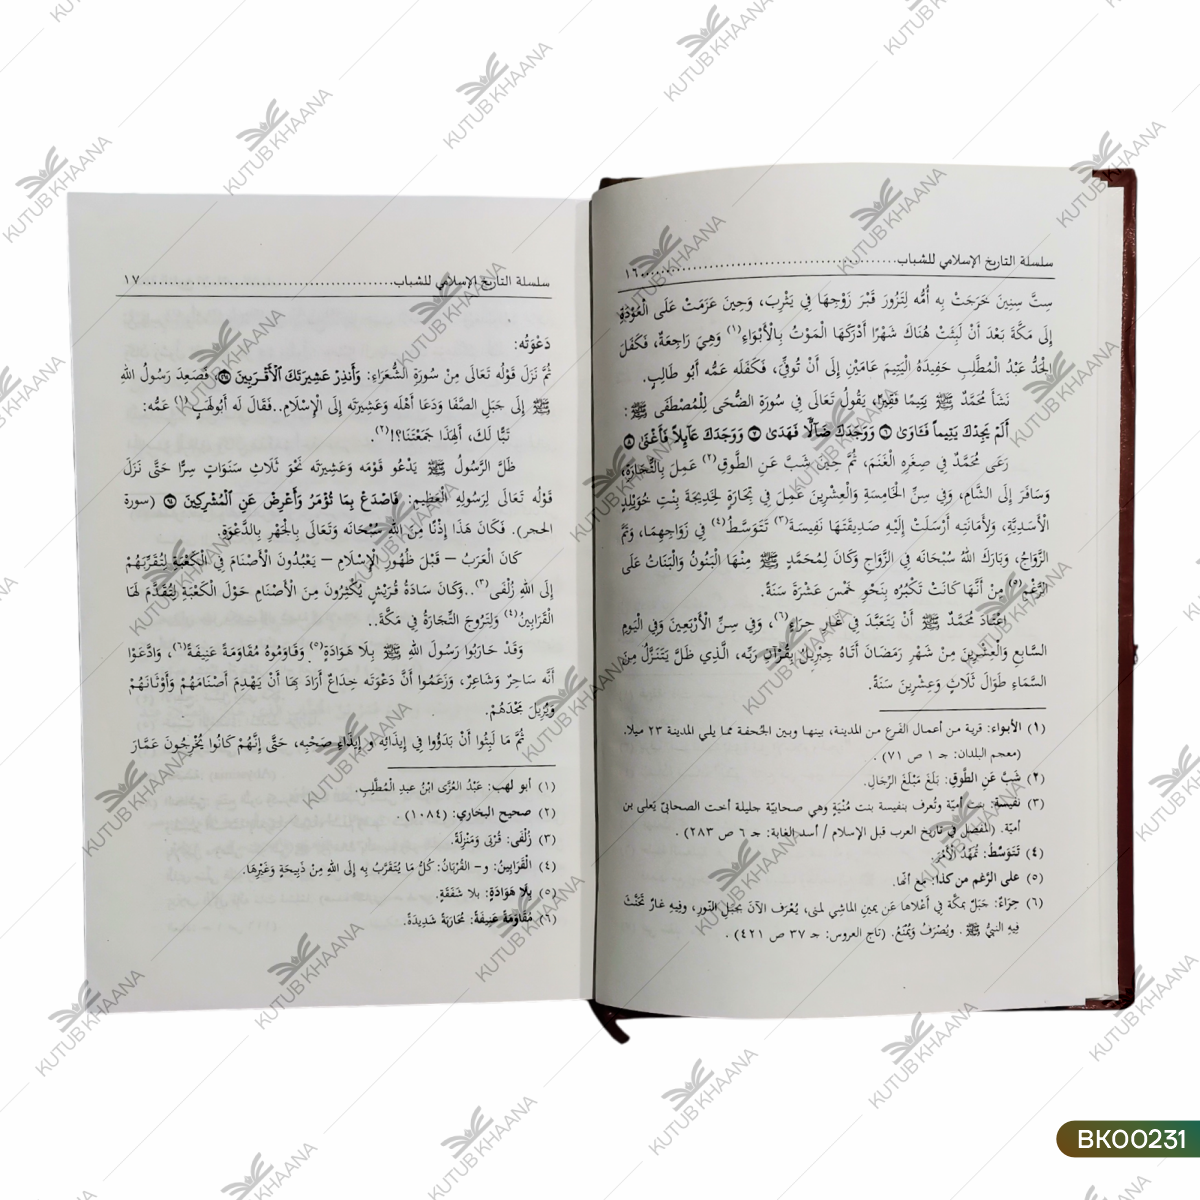 سلسلة التاريخ الإسلامي للشباب.............................................١٦
سِتَّ سِنِينَ خَرَجَتْ بِهِ أُمُّه لِتَزُورَ قَبْرَ زَوْجِهَا فِي يَثْرِبَ، وَحِينَ عَزَمَتْ عَلَى الْعَوْدَةِ
إِلَى مَكَّةَ بَعْدَ أَنْ لَبِثَتْ هُنَاكَ شَهْرًا أَدْرَكَهَا الْمَوْتُ بِالْأَبْوَاءِ(١) وَهِيَ رَاجِعَةٌ، فَكَفَلَ
الْجَدُّ عَبْدُ الْمُطَّلِبِ حَفِيدَهُ الْيَتِيمَ عَامَيْنِ إِلَى أَنْ تُوفِّيَ، فَكَفَلَه عَمُّه أَبُو طَالِبٍ.
نَشَأَ مُحَمَّدٌ ﷺ يَتِيمًا فَقِيرًا، يَقُولُ تَعَالَى فِي سُورَةِ الضُّحَى لِلْمُصْطَفَى ﷺ :
أَلَمْ يَجِدْكَ يَتِيماً فَـَٔاوَىٰ ۝٦ وَوَجَدَكَ ضَآلًّا فَهَدَىٰ ۝٧ وَوَجَدَكَ عَآئِلاً فَأَغْنَىٰ ۝٨
رَعَى مُحَمَّدٌ فِي صِغَرِهِ الْغَنَمَ، ثُمَّ حِيْنَ شَبَّ عَنِ الطَّوقِ(٢) عَمِلَ بِالتِّجَارَةِ،
وَسَافَرَ إِلَى الشَّامِ، وَفِي سِنِّ الْخَامِسَةِ وَالْعِشْرِينَ عَمِلَ فِي تِجَارَةٍ لِخَدِيجَةَ بِنْتِ خُوَيْلِدٍ
الْأَسَدِيَّةِ، وَلِأَمَانَتِه أَرْسَلَتْ إِلَيْهِ صَدِيقَتَهَا نَفِيسَةَ(٣) تَتَوَسَّطُ(٤) فِي زَوَاجِهِمَا، وَتَمَّ
الزَّوَاجُ، وَبَارَكَ اللهُ سُبْحَانَه فِي الزَّوَاجِ وَكَانَ لِمُحَمَّدٍ ﷺ مِنْهَا الْبَنُونُ وَالْبَنَاتُ عَلَى
الرَّغْمِ(٥) مِنْ أَنَّهَا كَانَتْ تَكْبُرُه بِنَحْوِ خَمْسَ عَشْرَةَ سَنَةً.
اِعْتَادَ مُحَمَّدٌ ﷺ أَنْ يَتَعَبَّدَ فِي غَارِ حِرَاءٍ(٦)، وَفِي سِنِّ الْأَرْبَعِينَ وَفِي الْيَومِ
السَّابِعِ وَالْعِشْرِينَ مِنْ شَهْرِ رَمَضَانَ أَتَاهُ جِبْرِيلُ بِقُرْآنِ رَبِّه، الَّذِي ظَلَّ يَتَنَزَّلُ مِنَ
السَّمَاءِ طَوَالَ ثَلَاثٍ وَعِشْرِينَ سَنَةً.
(١) الأبواء: قرية من أعمال الفرع من المدينة، بينها وبين الجحفة مما يلي المدينة ٢٣ ميلا.
(معجم البلدان: جـ ١ ص ٧١) .
(٢) شَبَّ عَنِ الطَّوقِ: بَلَغَ مَبْلَغَ الرِّجَالِ.
(٣) نَفِيسَة: بنت أميّة وتُعرف بنفيسة بنت مُنْيَة وهي صحابيّة جليلة أخت الصحابيّ يَعلى بن
أميّة. (المفصل في تاريخ العرب قبل الإسلام / أسد الغابة: جـ ٦ ص ٢٨٣) .
(٤) تَتَوَسَّطُ: تُمَهِّدُ الْأَمْرَ.
(٥) على الرَّغم من كذا: مع أنّها.
(٦) حِرَاءٌ: جَبَلٌ بمكّة في أعْلاها عن يمينِ الماشِي لمنى، يُعْرَف الآنَ بجَبَلِ النّور، وفِيهِ غارٌ تَحَنَّثَ
فِيهِ النبيُّ ﷺ . ويُصْرَفُ وَيُمْنَعُ. (تاج العروس: جـ ٣٧ ص ٤٢١) .
سلسلة التاريخ الإسلامي للشباب.............................................١٧
دَعْوَتُه:
ثُمَّ نَزَلَ قَوْلُه تَعَالَى مِنْ سُورَةِ الشُّعَرَاءِ: وَأَنذِرْ عَشِيرَتَكَ الْأَقْرَبِينَ ۝ فَصَعِدَ رَسُولُ اللهِ
ﷺ إِلَى جَبَلِ الصَّفَا وَدَعَا أَهْلَه وَعَشِيرَتَه إِلَى الْإِسْلَامِ..فَقَالَ لَه أَبُولَهَبٍ(١) عَمُّه:
تَبًّا لَكَ، أَلِهَذَا جَمَعْتَنَا؟!(٢).
ظَلَّ الرَّسُولُ ﷺ يَدْعُو قَوْمَه وَعَشِيرَتَه نَحْوَ ثَلَاثِ سَنَوَاتٍ سِرًّا حَتَّى نَزَلَ
قَوْلُه تَعَالَى لِرَسُولِهِ الْعَظِيمِ: فَاصْدَعْ بِمَا تُؤْمَرُ وَأَعْرِضْ عَنِ الْمُشْرِكِينَ ۝ (سورة
الحجر). فَكَانَ هَذَا إِذْنًا مِنَ اللهِ سُبْحَانَه وَتَعَالَى بِالْجَهْرِ بِالدَّعْوَةِ.
كَانَ الْعَرَبُ – قَبْلَ ظُهُورِ الْإِسْلَامِ – يَعْبُدُونَ الْأَصْنَامَ فِي الْكَعْبَةِ لِتُقَرِّبَهُمْ
إِلَى اللهِ زُلْفَى(٣)..وَكَانَ سَادَةُ قُرَيْشٍ يُكْثِرُونَ مِنَ الْأَصْنَامِ حَوْلَ الْكَعْبَةِ لِتُقَدَّمَ لَهَا
الْقَرَابِينُ(٤) وَلِتَرُوجَ التِّجَارَةُ فِي مَكَّةَ..
وَقَدْ حَارَبُوا رَسُولَ اللهِ ﷺ بِلَا هَوَادَةٍ(٥) وَقَاوَمُوهُ مُقَاوَمَةً عَنِيفَةً(٦)، وَادَّعَوْا
أَنَّه سَاحِرٌ وَشَاعِرٌ، وَزَعَمُوا أَنَّ دَعْوَتَه خِدَاعٌ أَرَادَ بِهَا أَنْ يَهْدِمَ أَصْنَامَهُمْ وَأَوْثَانَهُمْ
وَيُزِيلَ مَجْدَهُمْ.
ثُمَّ مَا لَبِثُوا أَنْ بَدَؤُوا فِي إِيذَائِه وَ إِيذَاءِ صَحْبِه، حَتَّى إِنَّهُمْ كَانُوا يُخْرِجُونَ عَمَّارَ
(١) أبو لهب: عَبْدُ العُزَّى ابْنُ عبدِ الْمُطَّلِبِ.
(٢) صحيح البخاري: (١٠٨٤) .
(٣) زُلْفَى: قُرْبَى وَمَنْزِلَةً.
(٤) الْقَرَابِينُ: و– القُرْبَانُ: كُلُّ مَا يُتَقَرَّبُ بِه إِلَى اللهِ مِنْ ذَبِيحَةٍ وَغَيْرِهَا.
(٥) بِلَا هَوَادَةٍ: بلا شَفَقَةٍ.
(٦) مُقَاوَمَةً عَنِيفَةً: مُحَارَبَةً شَدِيدَةً.
KUTUB KHAANA
BK00231